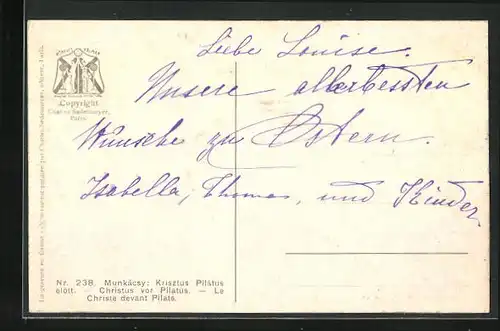 Liebe Louise.
Unsere allerbessten
Wünsche zu Ostern.
Isabella, Thomas, und Kinder
Copyright
Nr. 238. Munkácsy: Krisztus Pilátus
előtt. — Christus vor Pilatus. — Le
Christe devant Pilate.